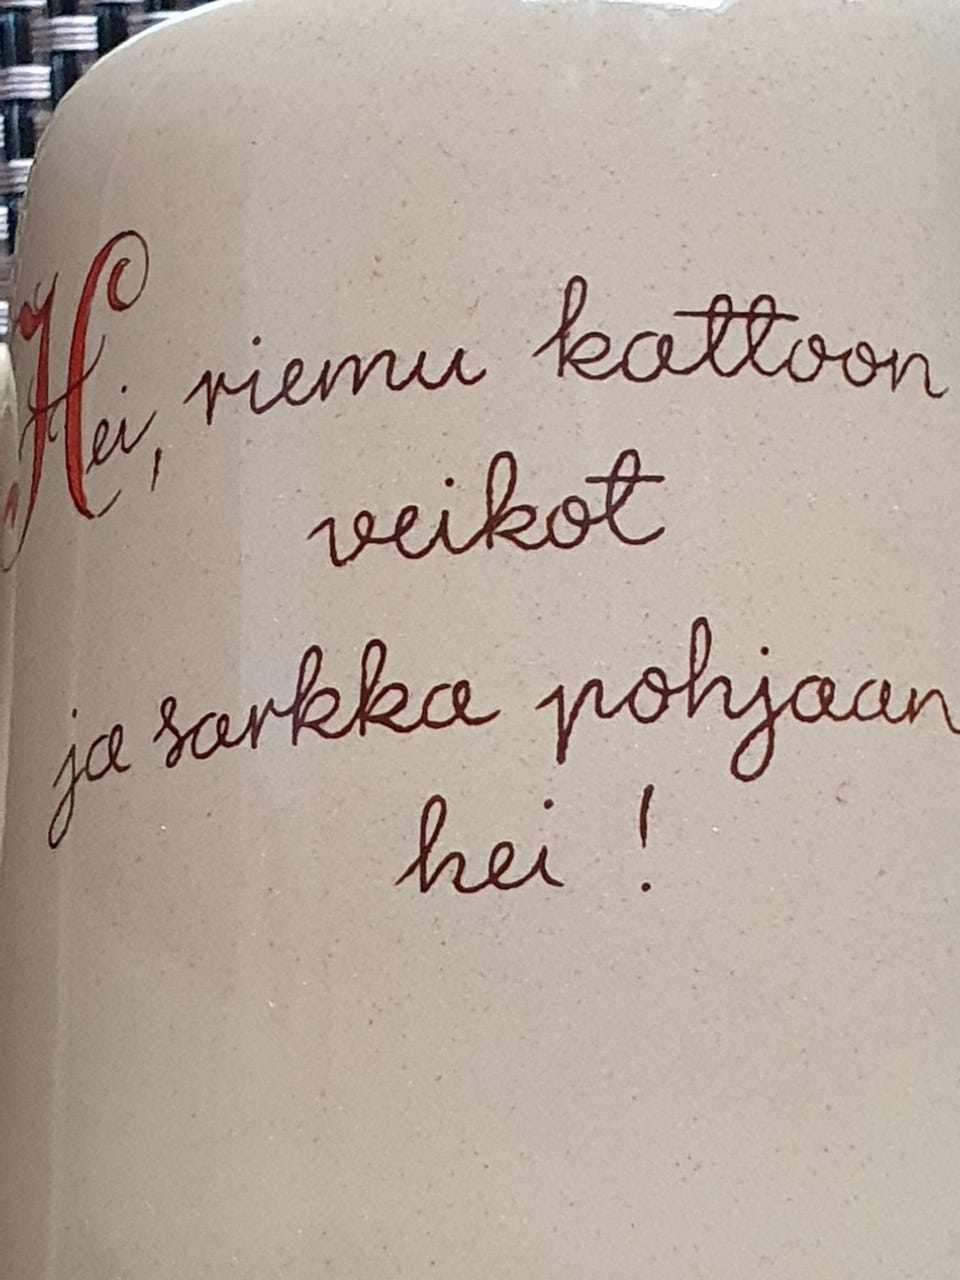 Hei, riemu kattoon
veikot
ja sarkka pohjaan
hei !